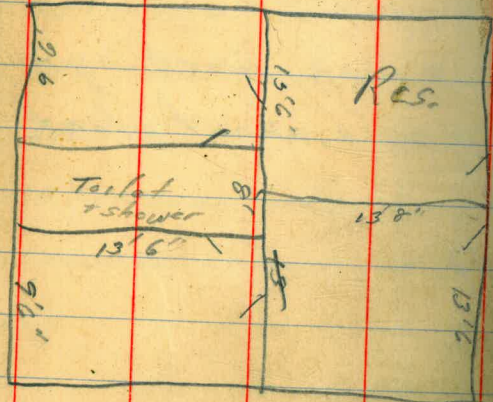 9'6
13'6"
Res.
Toilet
+ shower
8'
13'6"
13'8"
9'6"
13'6